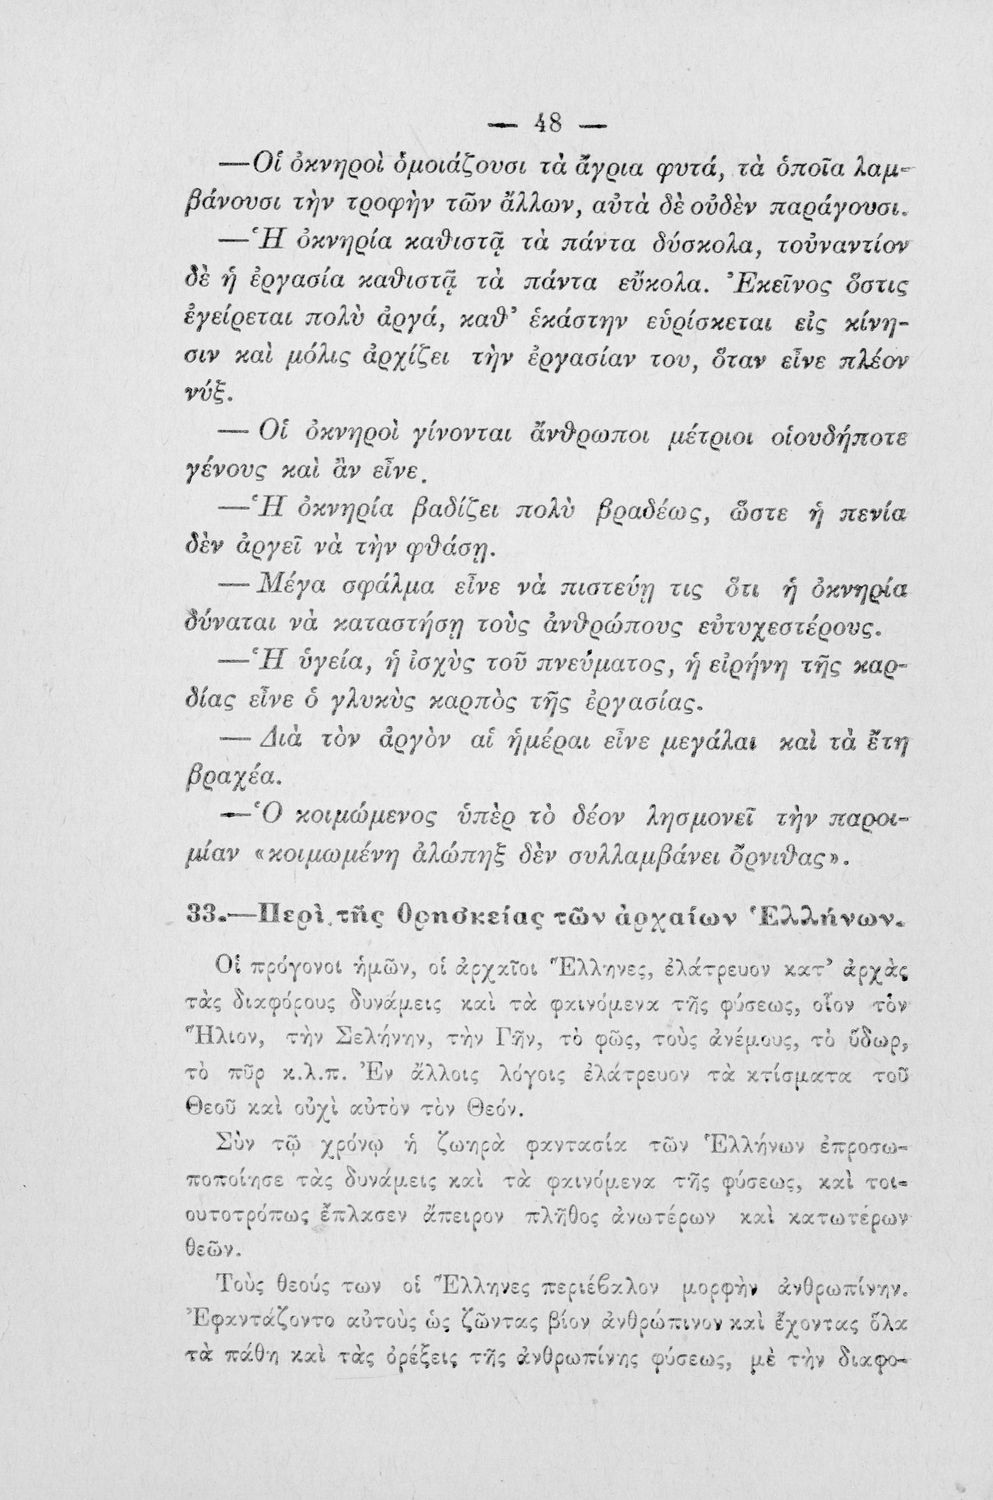 — 48 —
—Οἱ ὀκνηροὶ ὁμοιάζουσι τὰ ἄγρια φυτά, τὰ ὁποῖα λαμ-
βάνουσι τὴν τροφὴν τῶν ἄλλων, αὐτὰ δὲ οὐδὲν παράγουσι.
—Ἡ ὀκνηρία καθιστᾷ τὰ πάντα δύσκολα, τοὐναντίον
δὲ ἡ ἐργασία καθιστᾷ τὰ πάντα εὔκολα. Ἐκεῖνος ὅστις
ἐγείρεται πολὺ ἀργά, καθ’ ἑκάστην εὑρίσκεται εἰς κίνη-
σιν καὶ μόλις ἀρχίζει τὴν ἐργασίαν του, ὅταν εἶνε πλέον
νύξ.
— Οἱ ὀκνηροὶ γίνονται ἄνθρωποι μέτριοι οἱουδήποτε
γένους καὶ ἂν εἶνε.
—Ἡ ὀκνηρία βαδίζει πολὺ βραδέως, ὥστε ἡ πενία
δὲν ἀργεῖ νὰ τὴν φθάσῃ.
— Μέγα σφάλμα εἶνε νὰ πιστεύῃ τις ὅτι ἡ ὀκνηρία
δύναται νὰ καταστήσῃ τοὺς ἀνθρώπους εὐτυχεστέρους.
—Ἡ ὑγεία, ἡ ἰσχὺς τοῦ πνεύματος, ἡ εἰρήνη τῆς καρ-
δίας εἶνε ὁ γλυκὺς καρπὸς τῆς ἐργασίας.
— Διὰ τὸν ἀργὸν αἱ ἡμέραι εἶνε μεγάλαι καὶ τὰ ἔτη
βραχέα.
—Ὁ κοιμώμενος ὑπὲρ τὸ δέον λησμονεῖ τὴν παροι-
μίαν «κοιμωμένη ἀλώπηξ δὲν συλλαμβάνει ὄρνιθας».
33.—Περὶ τῆς θρησκείας τῶν ἀρχαίων Ἑλλήνων.
Οἱ πρόγονοι ἡμῶν, οἱ ἀρχαῖοι Ἕλληνες, ἐλάτρευον κατ’ ἀρχὰς
τὰς διαφόρους δυνάμεις καὶ τὰ φαινόμενα τῆς φύσεως, οἷον τὸν
Ἥλιον, τὴν Σελήνην, τὴν Γῆν, τὸ φῶς, τοὺς ἀνέμους, τὸ ὕδωρ,
τὸ πῦρ κ.λ.π. Ἐν ἄλλοις λόγοις ἐλάτρευον τὰ κτίσματα τοῦ
Θεοῦ καὶ οὐχὶ αὐτὸν τὸν Θεόν.
Σὺν τῷ χρόνῳ ἡ ζωηρὰ φαντασία τῶν Ἑλλήνων ἐπροσω-
ποποίησε τὰς δυνάμεις καὶ τὰ φαινόμενα τῆς φύσεως, καὶ τοι-
ουτοτρόπως ἔπλασεν ἄπειρον πλῆθος ἀνωτέρων καὶ κατωτέρων
θεῶν.
Τοὺς θεούς των οἱ Ἕλληνες περιέβαλον μορφὴν ἀνθρωπίνην.
Ἐφαντάζοντο αὐτοὺς ὡς ζῶντας βίον ἀνθρώπινον καὶ ἔχοντας ὅλα
τὰ πάθη καὶ τὰς ὀρέξεις τῆς ἀνθρωπίνης φύσεως, μὲ τὴν διαφο-